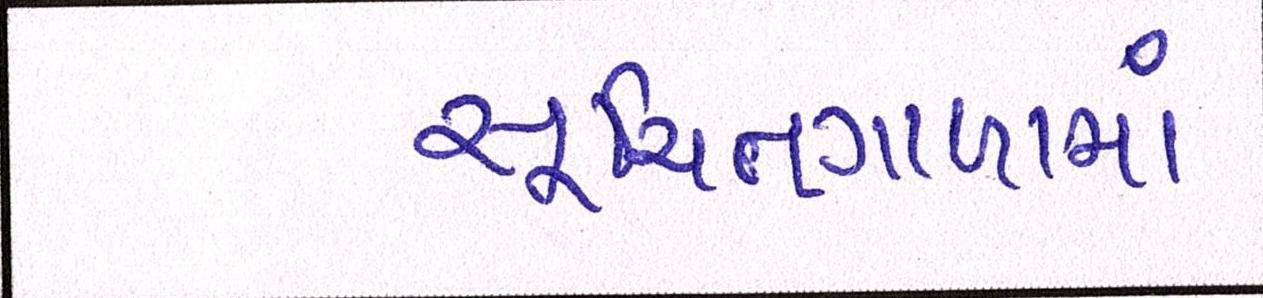 સૂચિતગાળામાં